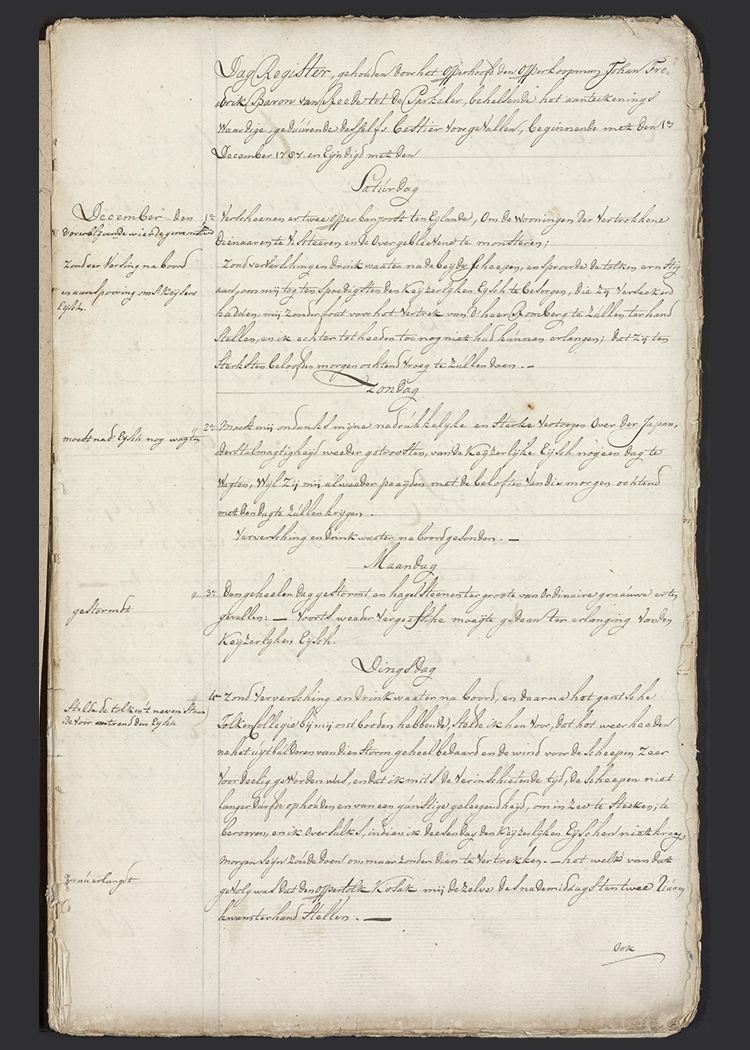 Dag Register, gehouden door het Opperhoofd den Opperkoopman Johan Fre-
drik Baron van Reede tot de Parkeler, behelsende het aanteekenings
Waardige, geduurende desselfs bestier voorgevallen, beginnende met den 1en
December 1787. en Eijndigd met den
Saturdag
December den 1e Verscheenen er twee opper banjoost ten Eylande, Om de wooningen der Vertrokkene
Dienaaren te Visiteeren en de Overgebleevene te monsteren;
de overblijvende wierde gemonsterd
Zond ververschingen drink waater na de beijde scheepen, en spoorde de tolken ernstig
aan, om mij tog ten spoedigsten den Keijzerlyken Eijsch te besorgen, die Zij Verseekerd
hadden, mij zonder fout voor het Vertrek van d'heer Romberg te Zullen ter hand
Stellen, en ik echter tot heeden toe nog niet had kunnen erlangen; dat Zij ten
Sterksten beloofden morgen ochtend vroeg te Zullen doen. —
Zond ver Versing na boord
en aanspooring om 's Keijsers
Eijsch.
Zondag
2e Moest mij ondanks mijne nadrukkelyke en Sterke Vertoogen Over der Japan,
ders talmagtigheyd weeder getroosten, van de Keijzerlijke Eijsch nog een dag te
Wagten, Wyl Zij mij al weeder paeijden met de beloften Van dien morgen ochtend
met den dag te Zullen krijgen.
moest nad Eijsch nog wagten
Ververssching en drink waater na boord gesonden. —
Maandag
3e Den geheelen dag gestormt en hagelsteenen ter groote van Ordinaire graeuwe erten
gevallen: — Voorts weeder vergeefsche moeijte gedaan ter erlanging Van den
Keijzerlijken Eijsch.
gestormdt
Dingsdag
4e Zond Verversching en drink waater na boord, en daarna het gantsche
Tolken Collegie bij mij ontbooden hebbende, Stelde ik hen Voor, dat het weer heeden
na het uijtbulderen van dien Storm geheel bedaard en de wind voor de Scheepen Zeer
Voordeelig geworden was, en dat ik mits de Verinschietende tijd, de Scheepen niet
langer durfde ophouden en van een gunstige geleegendheyd, om in Zee te Steeken, te
berooven, en ik Oversulks, indien ik deesen dag den Keijzerlyken Eijsch en niet kreeg,
morgen Seijn Zoude doen om maar zonder dien te Vertrekken. — het welk van dat
gevolg was dat den oppertolk Kosak mij dezelve des nademiddags ten twee Uuren
kwam ter hand Stellen. —
Stelde de tolken 't neven Staan
de Voor omtrend den Eijsch
en nu erlangd
Ook